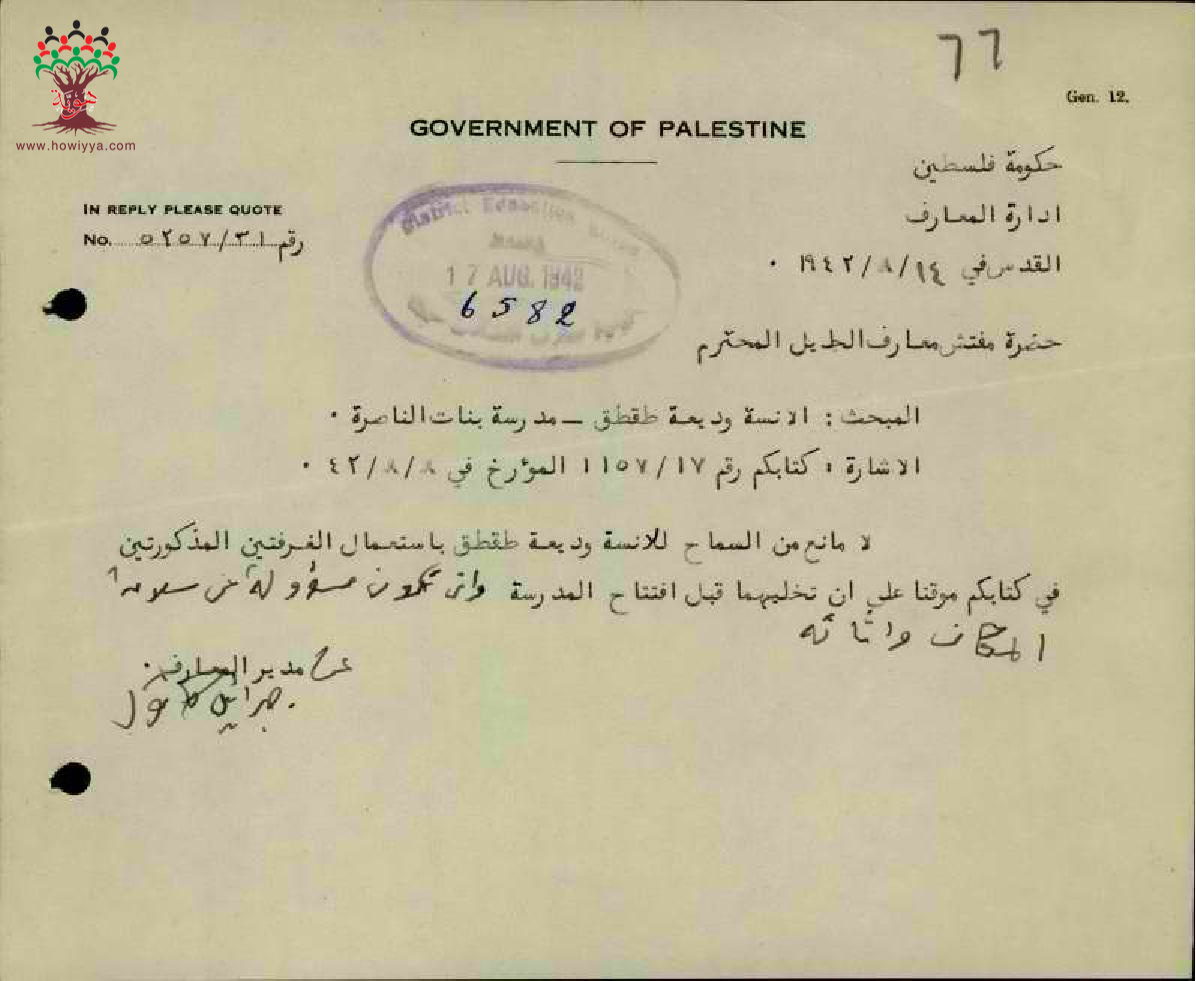 www.howiyya.com
٦٦
Gen. 12.
GOVERNMENT OF PALESTINE
حكومة فلسطين
ادارة المعارف
القدس في ١٤/٨/١٩٤٢ ٠
IN REPLY PLEASE QUOTE
No. ٥٢٥٧/٣١ رقم
District Education
17 AUG. 1942
6582
حضرة مفتش معارف الجليل المحترم
المبحث : الانسة وديعة طقطق – مدرسة بنات الناصرة ٠
الاشارة : كتابكم رقم ١١٥٧/١٧ المؤرخ في ٤٢/٨/٨ ٠
لا مانع من السماح للانسة وديعة طقطق باستعمال الغرفتين المذكورتين
في كتابكم موقتا على ان تخليهما قبل افتتاح المدرسة وان تكون مسؤولة عن سلامة
المكان واثاثه
عن مدير المعارف